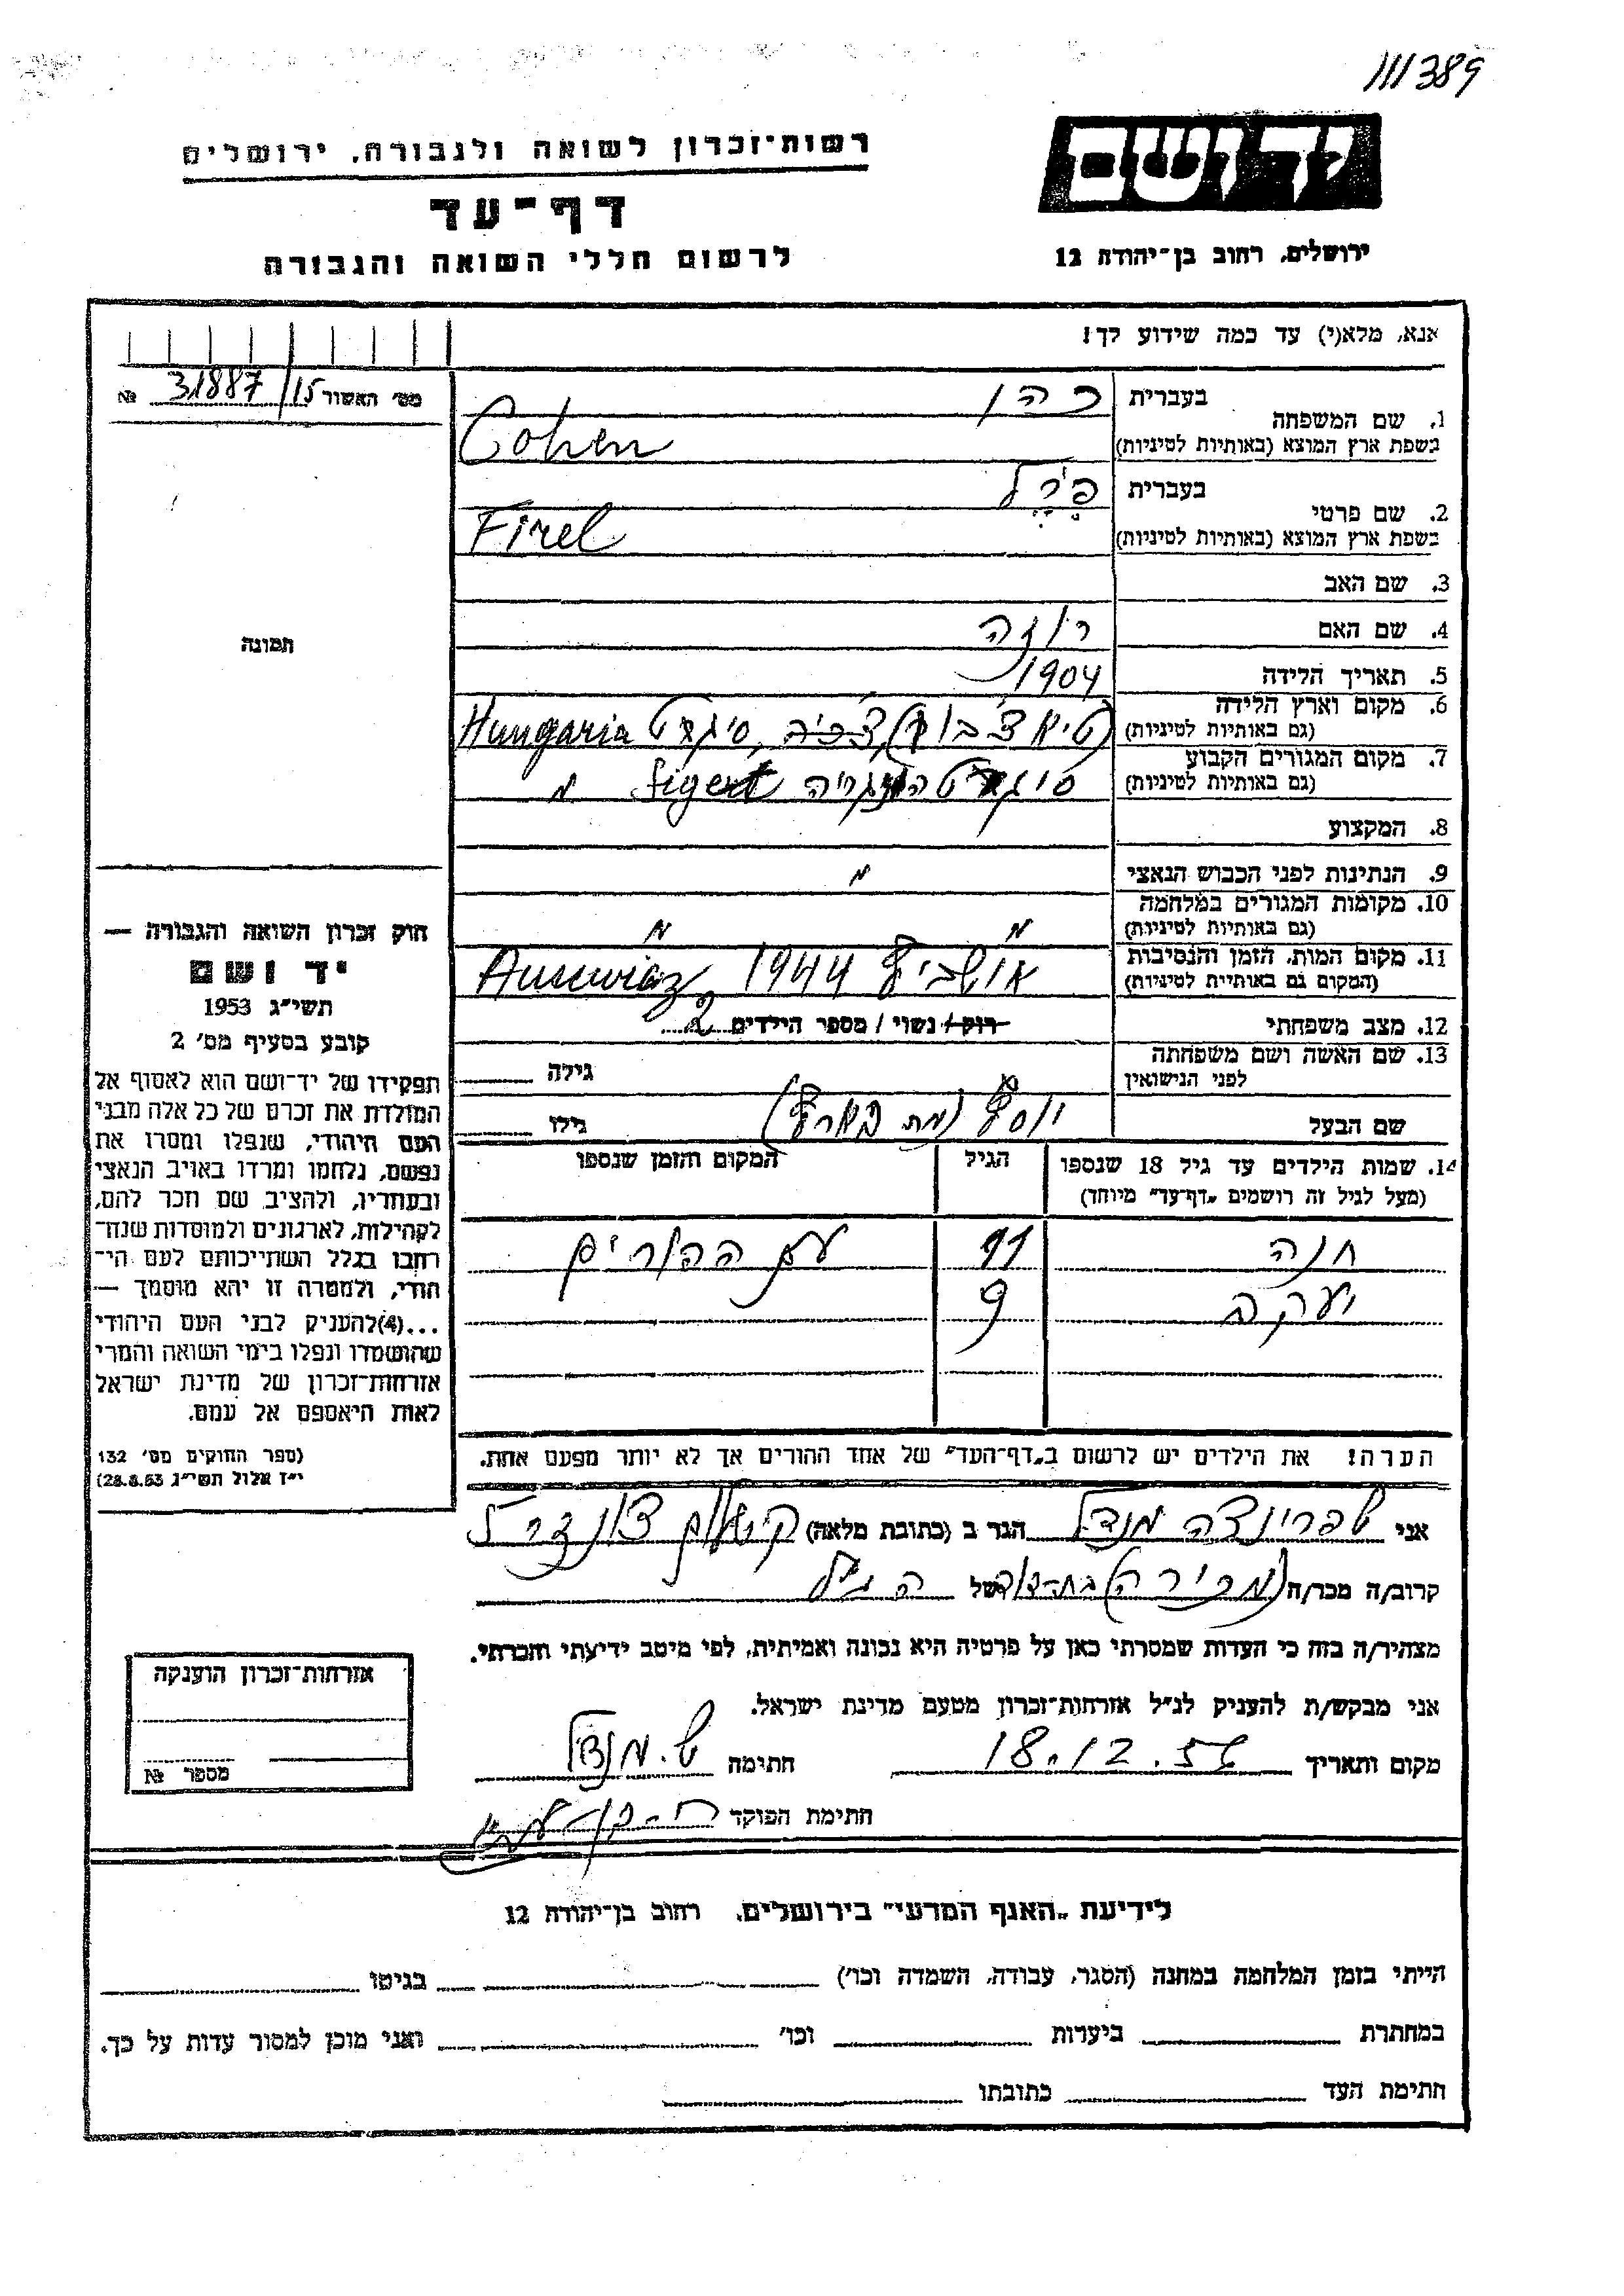 111389
יד ושם
ירושלים, רחוב בן־יהודה 12
רשות־זכרון לשואה ולגבורה, ירושלים
דף־עד
לרשום חללי השואה והגבורה
אנא, מלא(י) עד כמה שידוע לך!
מס' האשור 31887/15 №
1. שם המשפחה
בעברית כהן
בשפת ארץ המוצא (באותיות לטיניות) Cohen
2. שם פרטי
בעברית פירל
בשפת ארץ המוצא (באותיות לטיניות) Firel
3. שם האב
4. שם האם רוזה
5. תאריך הלידה 1904
6. מקום וארץ הלידה סיגרט Hungaria
(גם באותיות לטיניות)
7. מקום המגורים הקבוע Sigert
(גם באותיות לטיניות)
8. המקצוע
9. הנתינות לפני הכבוש הנאצי "
10. מקומות המגורים במלחמה " "
(גם באותיות לטיניות)
11. מקום המות, הזמן והנסיבות אושביץ 1944 Auscwiaz
(המקום גם באותיות לטיניות)
12. מצב משפחתי רוק / נשוי / מספר הילדים 2
13. שם האשה ושם משפחתה
לפני הנישואין גילה
שם הבעל יוסף (מת בארץ) גילו
14. שמות הילדים עד גיל 18 שנספו הגיל המקום והזמן שנספו
(מעל לגיל זה רושמים „דף־עד" מיוחד)
חנה 11 עם ההורים
יעקב 9
הערה! את הילדים יש לרשום ב„דף־העד" של אחד ההורים אך לא יותר מפעם אחת.
תמונה
חוק זכרון השואה והגבורה —
יד ושם
תשי"ג 1953
קובע בסעיף מס' 2
תפקידו של יד־ושם הוא לאסוף אל
המולדת את זכרם של כל אלה מבני
העם היהודי, שנפלו ומסרו את
נפשם, נלחמו ומרדו באויב הנאצי
ובעוזריו, ולהציב שם וזכר להם,
לקהילות, לארגונים ולמוסדות שנח־
רבו בגלל השתייכותם לעם הי־
הודי, ולמטרה זו יהא מוסמך —
...(4)להעניק לבני העם היהודי
שהושמדו ונפלו בימי השואה והמרי
אזרחות־זכרון של מדינת ישראל
לאות היאספם אל עמם.
(ספר החוקים מס' 132
י"ז אלול תשי"ג 28.8.53)
אני שפרינצה מנדל הגר ב (כתובת מלאה)
קרוב/ה מכר/ה (מכירה) של הנ"ל
מצהיר/ה בזה כי העדות שמסרתי כאן על פרטיה היא נכונה ואמיתית, לפי מיטב ידיעתי והכרתי.
אני מבקש/ת להעניק לנ"ל אזרחות־זכרון מטעם מדינת ישראל.
מקום ותאריך 18.12.56 חתימה ש. מנדל
חתימת הפוקד
אזרחות־זכרון הוענקה
מספר №
לידיעת „האגף המדעי" בירושלים, רחוב בן־יהודה 12
הייתי בזמן המלחמה במחנה (הסגר, עבודה, השמדה וכו') בגיטו
במחתרת ביערות וכו' ואני מוכן למסור עדות על כך.
חתימת העד כתובתו